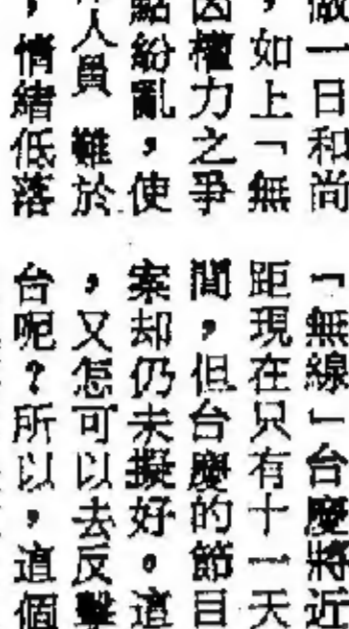 做一日和尚
，如上「無
因權力之爭
點紛亂，使
人員難於
，情緒低落
「無線」台慶將近
距現在只有十一天
間，但台慶的節目
案却仍未擬好。這
，又怎可以去反擊
台呢？所以，這個